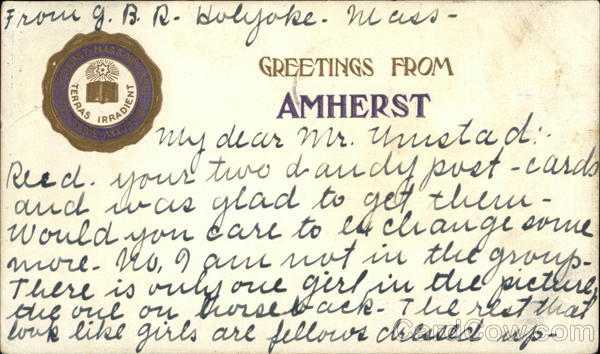 From G. B. R. Holyoke. Mass-
TERRAS IRRADIENT
GREETINGS FROM
AMHERST
My dear Mr. Umstad:-
Recd. your two dandy post-cards
and was glad to get them-
Would you care to exchange some
more. No, I am not in the group-
There is only one girl in the picture,
the one on horseback- The rest that
look like girls are fellows dressed up-
CardCow.com